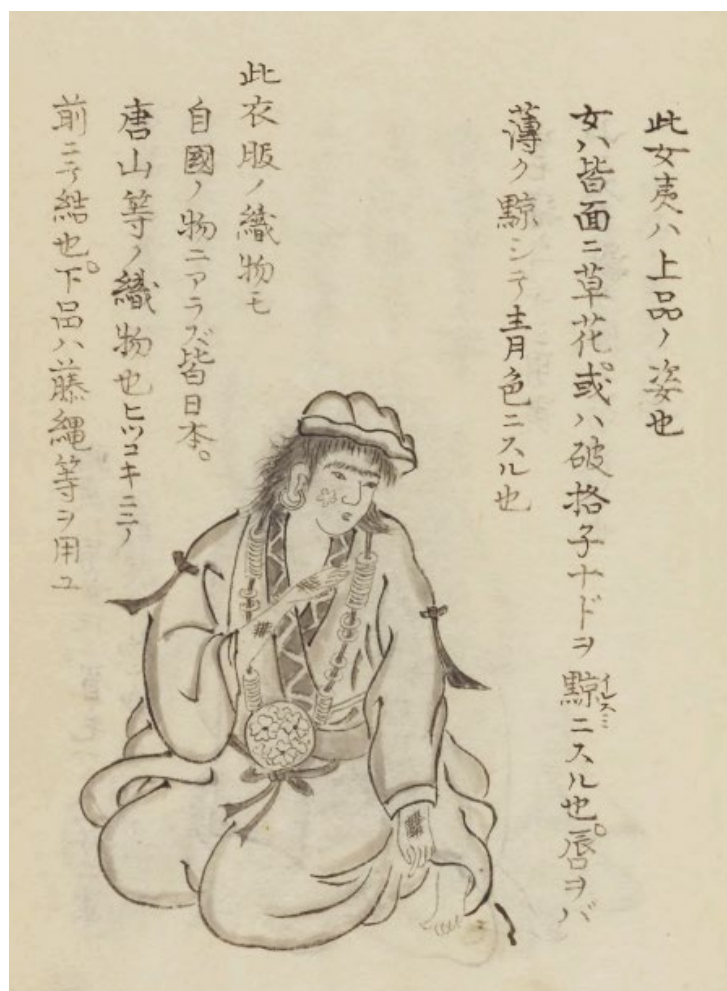 此女夷ハ上品ノ姿也
女ハ皆面ニ草花。或ハ破格子ナドヲ黥ニスル也。唇ヲバ
イレスミ
薄ク黥シテ青月色ニスル也
此衣服ノ織物モ
自國ノ物ニアラズ皆日本。
唐山等ノ織物也ヒツコキニシ
前ニテ結也。下品ハ藤縄等ヲ用ユ